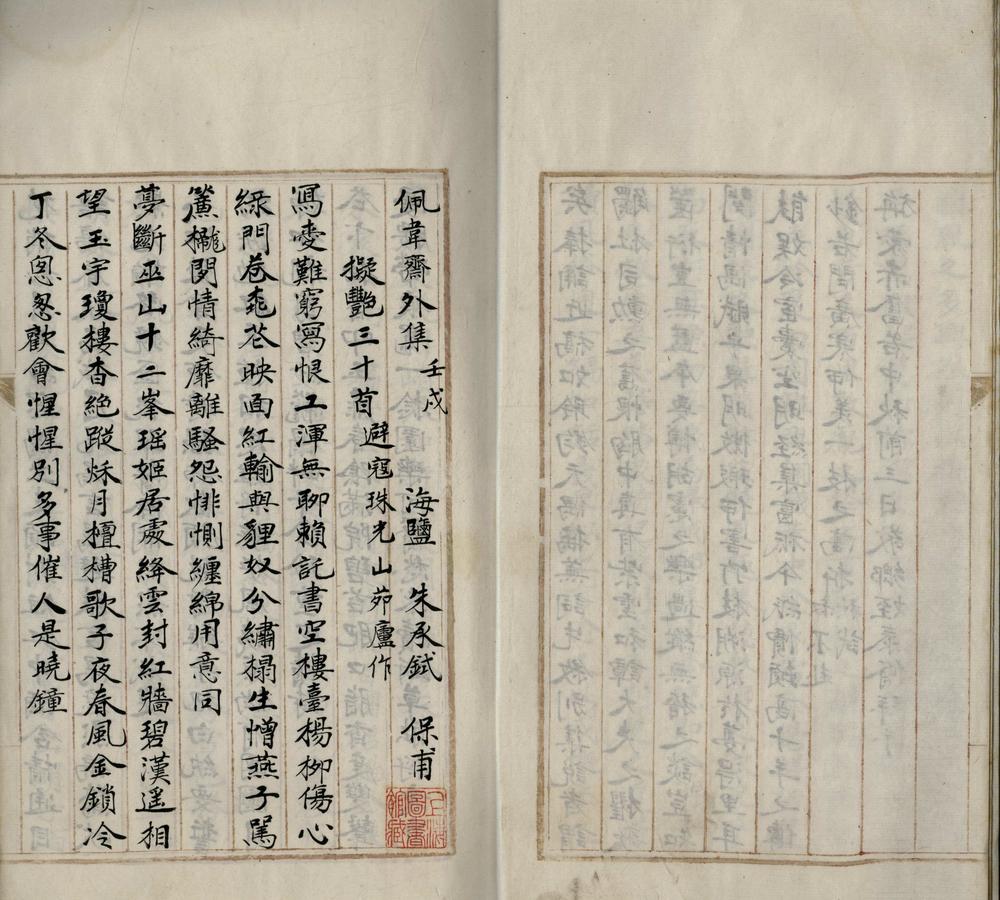 佩韋齋外集 壬戌 海鹽 朱承鉽 保甫
擬豔三十首 避寇珠光山茆廬作
寫愛難窮寫恨工渾無聊賴託書空樓臺楊柳傷心
綠門巷桃花映面紅輸與貍奴兮繡榻生憎燕子罵
簾櫳閔情綺靡離騷怨悱惻纏綿用意同
夢斷巫山十二峯瑶姬居處絳雲封紅牆碧漢遥相
望玉宇瓊樓杳絕蹤秌月檀槽歌子夜春風金鎖冷
丁冬恩怱歡會惺惺別多事催人是曉鐘
上海圖書館藏